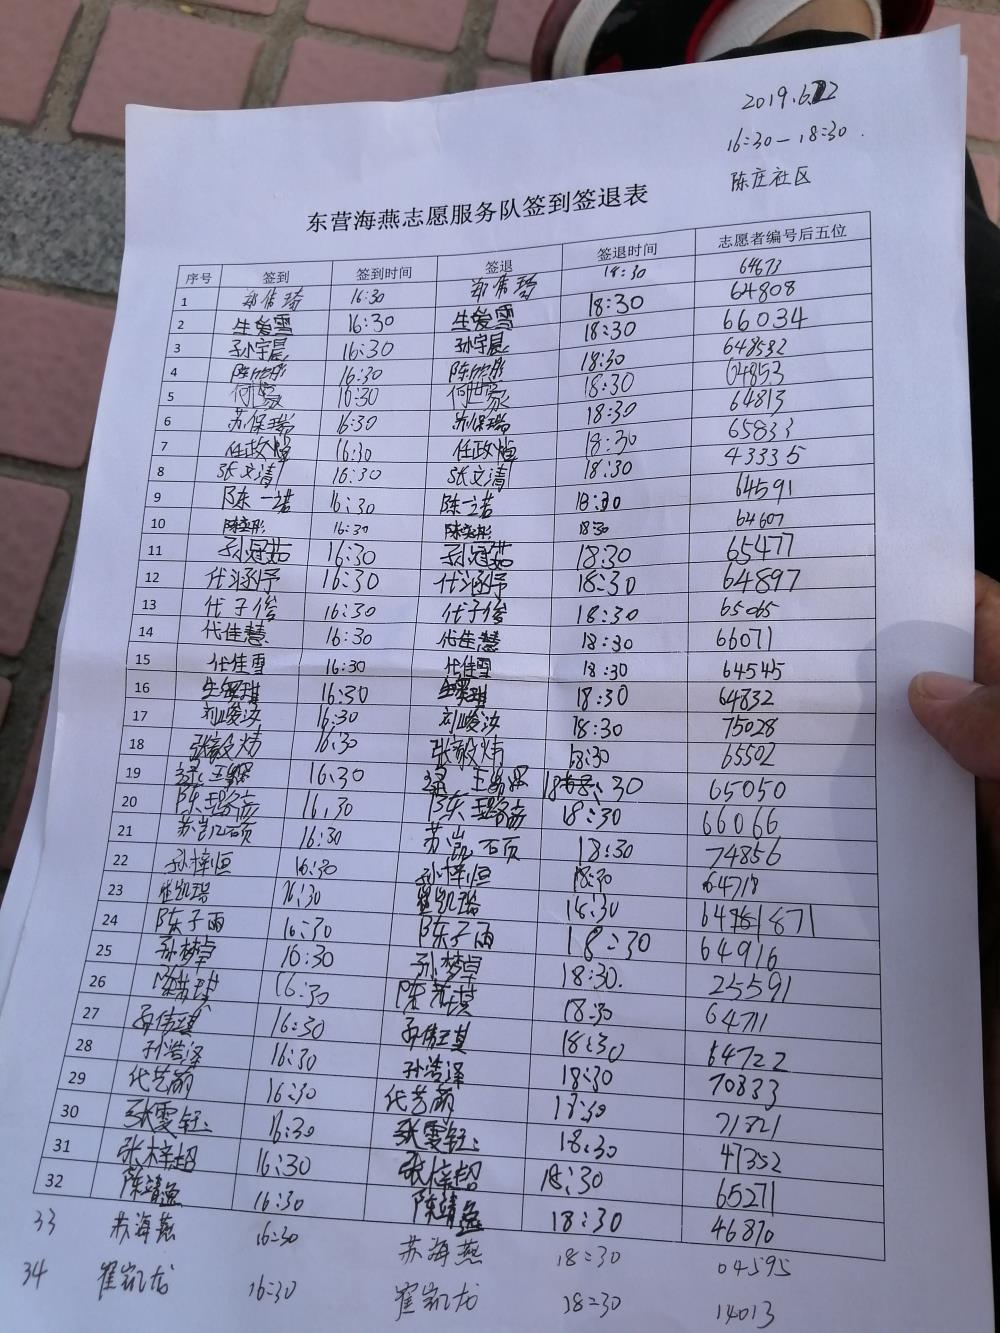 2019.6.22
16:30—18:30.
陈庄社区
东营海燕志愿服务队签到签退表
序号 签到 签到时间 签退 签退时间 志愿者编号后五位
1 16:30 18:30 64673
2 生爱雪 16:30 生爱雪 18:30 64808
3 孙宇晨 16:30 孙宇晨 18:30 66034
4 陈欣彤 16:30 陈欣彤 18:30 648532
5 何世豪 16:30 何世豪 18:30 64853
6 苏保瑞 16:30 苏保瑞 18:30 64813
7 任政恺 16:30 任政恺 18:30 65833
8 张文清 16:30 张文清 18:30 43335
9 陈一诺 16:30 陈一诺 18:30 64591
10 陈奕彤 16:30 陈奕彤 18:30 64607
11 孙冠茹 16:30 孙冠茹 18:30 65477
12 代涵予 16:30 代涵予 18:30 64897
13 代子俊 16:30 代子俊 18:30 65065
14 代佳慧 16:30 代佳慧 18:30 66071
15 代佳雪 16:30 代佳雪 18:30 64545
16 16:30 18:30 64832
17 刘峻汝 16:30 刘峻汝 18:30 75028
18 张毅炜 16:30 张毅炜 18:30 65502
19 16:30 18:30 65050
20 陈璐彦 16:30 陈璐彦 18:30 66066
21 苏凯硕 16:30 苏凯硕 18:30 74856
22 孙梓恒 16:30 孙梓恒 18:30 64718
23 崔凯璐 16:30 崔凯璐 18:30 871
24 陈子雨 16:30 陈子雨 18:30 64916
25 孙梦卓 16:30 孙梦卓 18:30. 25591
26 陈芳琪 16:30 陈芳琪 18:30 64711
27 孙伟琪 16:30 孙伟琪 18:30 64722
28 孙浩泽 16:30 孙浩泽 18:30 70833
29 代艺萌 16:30 代艺萌 18:30 71821
30 张雯钰 16:30 张雯钰 18:30 47352
31 张梓超 16:30 张梓超 18:30 65271
32 陈靖逸 16:30 陈靖逸 18:30 46870
33 苏海燕 16:30 苏海燕 18:30 04595
34 崔凯龙 16:30 崔凯龙 18:30 14013